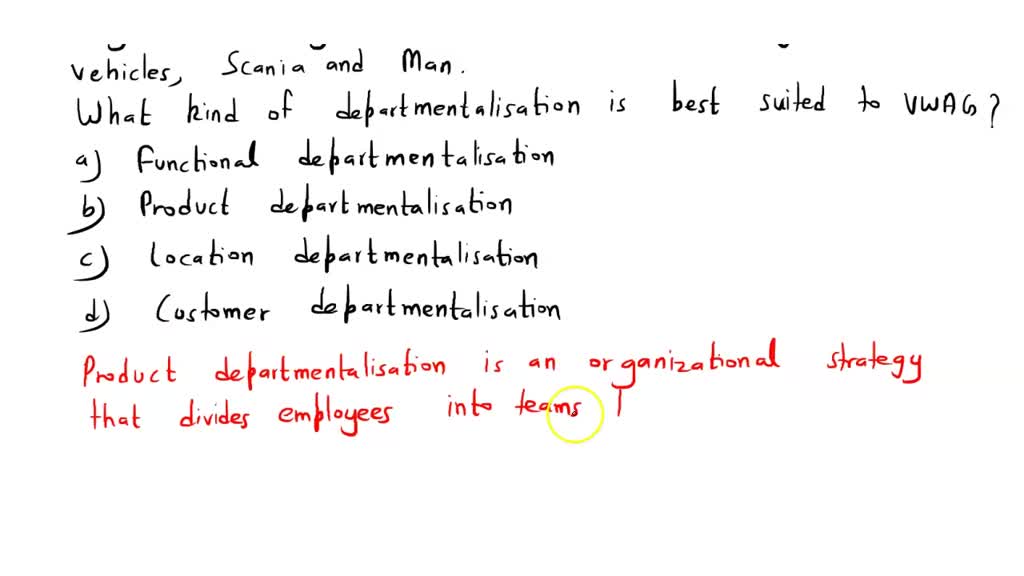 vehicles, Scania and Man.
What kind of departmentalisation is best suited to VWAG?
a) Functional departmentalisation
b) Product departmentalisation
c) Location departmentalisation
d) Customer departmentalisation
Product departmentalisation is an organizational strategy
that divides employees into teams